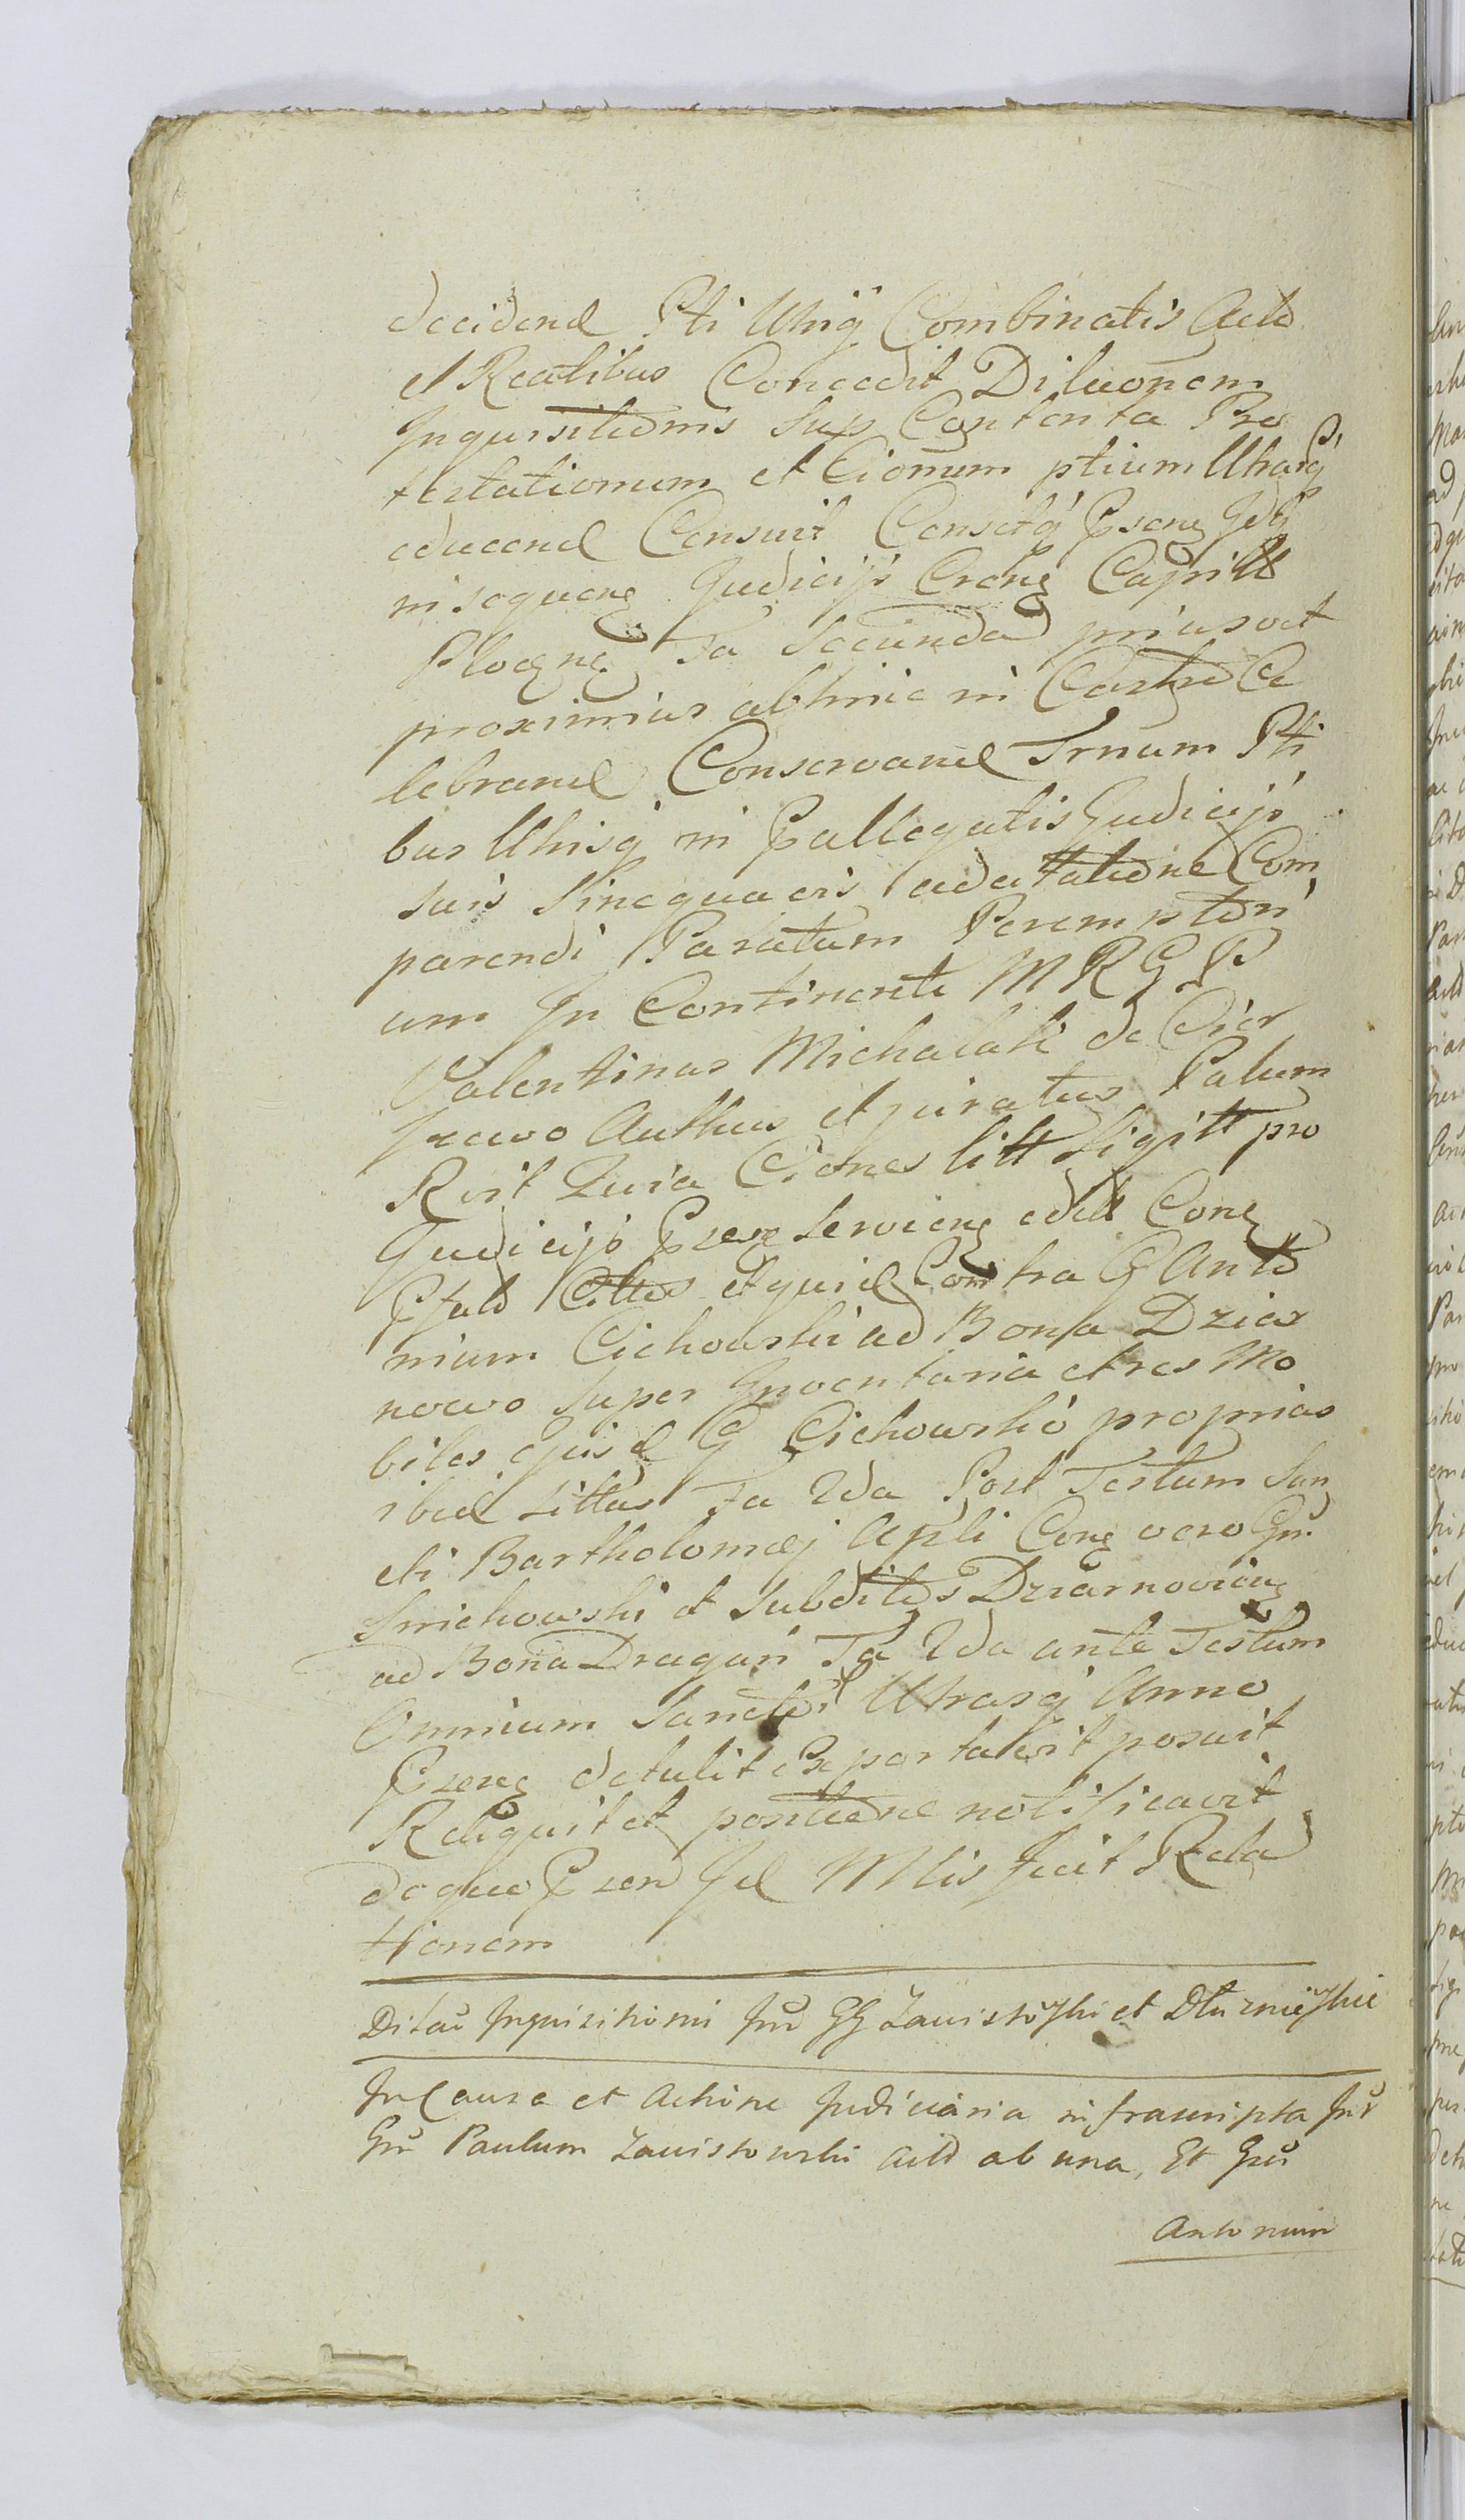 decidend Pti Utriq Combinatis Acto
et Reatibus Concedit Dilaonem
Inquisitionis Sup Contenta Pro
testationum et Cionum ptium Utrarq
educend Censuit Censetq Psenq
in sequenq Judicijs Crenq Capitt
Plocenq Fa Secunda prius aut
proximius abhinc in Castro Ce
lebrand Conservand Trnum Pti
bus Utrisq in Pallegatis Judicijs
suis sine quavis adcitatione Com
parendi Paratum Peremptori
um In Continenti M R G P
Valentinus Michalski de Cier
Authus et juratus Palum
Rvit Quia Ciones litt Sigitt pro
Judicijs Pzenq Servienq edit Conq
et quid Contra G Anto
nium Cichowski ad Bona Dziar
nowo Super Inventaria et res Mo
biles ejusd G Cichowski proprias
ibid sittas Fa 2da Post Festum San
cti Bartholomej Apli Conq vero Gn
Smichowski et Subditos Dziarnovienq
ad Bona Dragan Fa 2da ante Festum
Omnium Sanctor Utrasq Anno
Pzenq detulit Exportavit posuit
Reliquit et positione notificavit
de quo Pzen Id Mlis fecit Rela
tionem
Dilao Inquisitionis Inr GG Zawistowski et Dłuzniewski
In Causa et Actione Judiciaria infrascripta Inr
Gn Paulum Zawistowski Acto ab una, Et Gn
Antonium